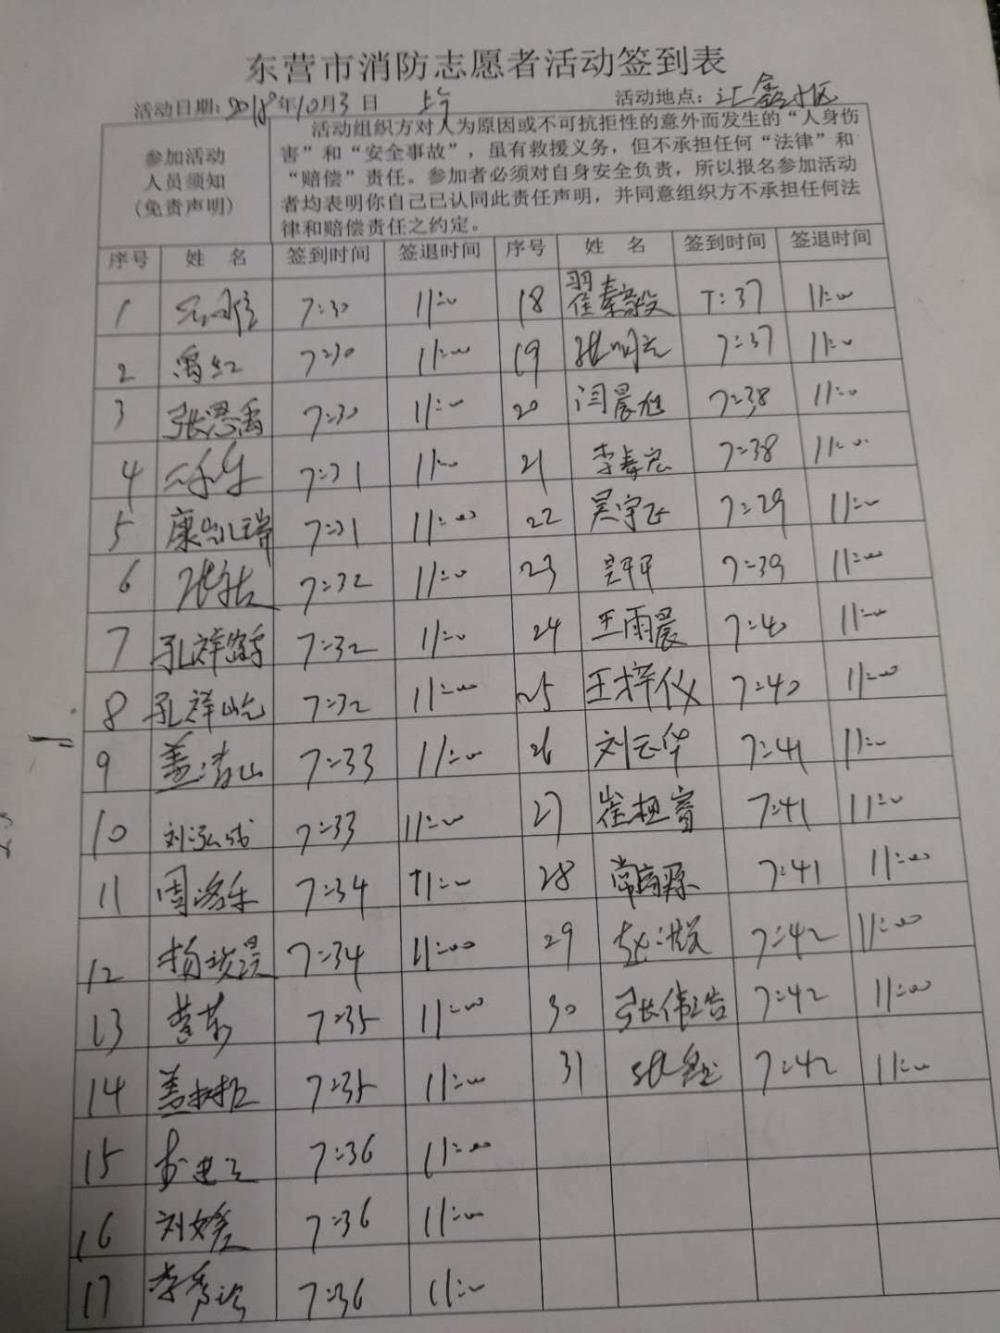 东营市消防志愿者活动签到表
活动日期: 2018年10月3日 上午 活动地点: 汇鑫小区
参加活动
人员须知
(免责声明)
活动组织方对人为原因或不可抗拒性的意外而发生的“人身伤
害”和“安全事故”，虽有救援义务，但不承担任何“法律”和
“赔偿”责任。参加者必须对自身安全负责，所以报名参加活动
者均表明你自己已认同此责任声明，并同意组织方不承担任何法
律和赔偿责任之约定。
序号 姓 名 签到时间 签退时间 序号 姓 名 签到时间 签退时间
1 7:30 11:00 18 翟秦毅 7:37 11:00
2 禹红 7:30 11:00 19 张明志 7:37 11:00
3 张恩禹 7:30 11:00 20 闫晨旭 7:38 11:00
4 7:31 11:00 21 李春宏 7:38 11:00
5 康凯瑞 7:31 11:00 22 吴宇飞 7:29 11:00
6 7:32 11:00 23 7:39 11:00
7 孔祥鹤 7:32 11:00 24 王雨晨 7:40 11:00
8 孔祥屹 7:32 11:00 25 王梓仪 7:40 11:00
9 盖清山 7:33 11:00 26 刘云华 7:41 11:00
10 刘泓成 7:33 11:00 27 7:41 11:00
11 周洛乐 7:34 11:00 28 7:41 11:00
12 7:34 11:00 29 7:42 11:00
13 7:35 11:00 30 张伟浩 7:42 11:00
14 7:35 11:00 31 7:42 11:00
15 7:36 11:00
16 刘媛 7:36 11:00
17 李秀 7:36 11:00